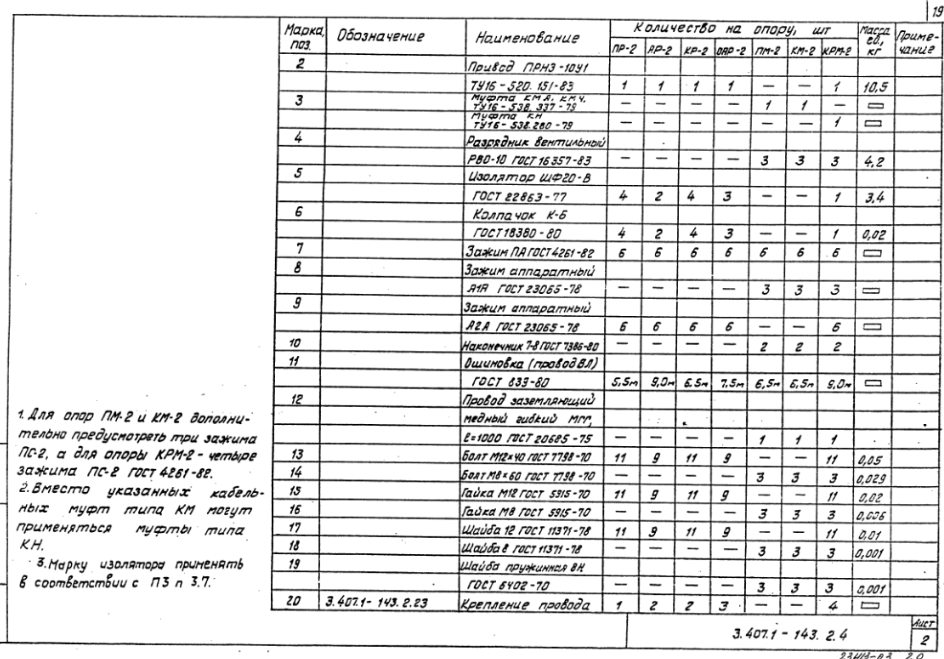 19
Марка, поз. Обозначение Наименование Количество на опору, шт Масса ед., кг Приме-чание
ПР-2 АР-2 КР-2 ОАР-2 ПМ-2 КМ-2 КРМ-2
2 Привод ПРНЗ-10У1
ТУ16-520.151-83 1 1 1 1 — — 1 10,5
3 Муфта КМА, КМЧ,
ТУ16-538.337-79 — — — — 1 1 —
Муфта КН
ТУ16-538.280-79 — — — — — — 1
4 Разрядник вентильный
РВО-10 ГОСТ 16357-83 — — — — 3 3 3 4,2
5 Изолятор ШФ20-В
ГОСТ 22863-77 4 2 4 3 — — 1 3,4
6 Колпачок К-6
ГОСТ 18380-80 4 2 4 3 — — 1 0,02
7 Зажим ПА ГОСТ 4261-82 6 6 6 6 6 6 6
8 Зажим аппаратный
А1А ГОСТ 23065-78 — — — — 3 3 3
9 Зажим аппаратный
А2А ГОСТ 23065-78 6 6 6 6 — — 6
10 Наконечник 7-8 ГОСТ 7386-80 — — — — 2 2 2
11 Ошиновка (провод ВЛ)
ГОСТ 839-80 5,5м 9,0м 6,5м 7,5м 6,5м 6,5м 9,0м
12 Провод заземляющий
медный гибкий МГГ,
ℓ=1000 ГОСТ 20685-75 — — — — 1 1 1
13 Болт М12×40 ГОСТ 7798-70 11 9 11 9 — — 11 0,05
14 Болт М8×60 ГОСТ 7798-70 — — — — 3 3 3 0,029
15 Гайка М12 ГОСТ 5915-70 11 9 11 9 — — 11 0,02
16 Гайка М8 ГОСТ 5915-70 — — — — 3 3 3 0,006
17 Шайба 12 ГОСТ 11371-78 11 9 11 9 — — 11 0,01
18 Шайба 8 ГОСТ 11371-78 — — — — 3 3 3 0,001
19 Шайба пружинная 8Н
ГОСТ 6402-70 — — — — 3 3 3 0,001
20 3.407.1-143.2.23 Крепление провода 1 2 2 3 — — 4
1. Для опор ПМ-2 и КМ-2 дополни-
тельно предусмотреть три зажима
ПС-2, а для опоры КРМ-2 - четыре
зажима ПС-2 ГОСТ 4261-82.
2. Вместо указанных кабель-
ных муфт типа КМ могут
применяться муфты типа
КН.
3. Марку изолятора применять
в соответствии с ПЗ п 3.7.
3.407.1-143.2.4
Лист
2
20